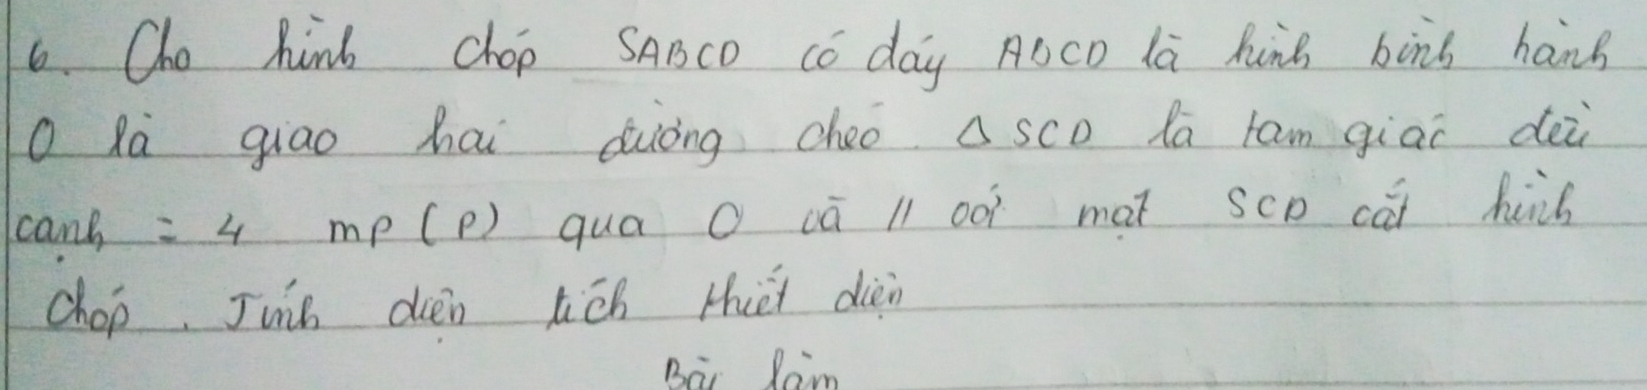 6. Cho hình chóp SABCD có đáy ABCD là hình bình hành
O là giao hai đường chéo. Δ SCD là tam giác đều
cạnh = 4 mp (P) qua O và // với mặt SCD cắt hình
Chóp. Tính diện tích thiết diện
Bài làm